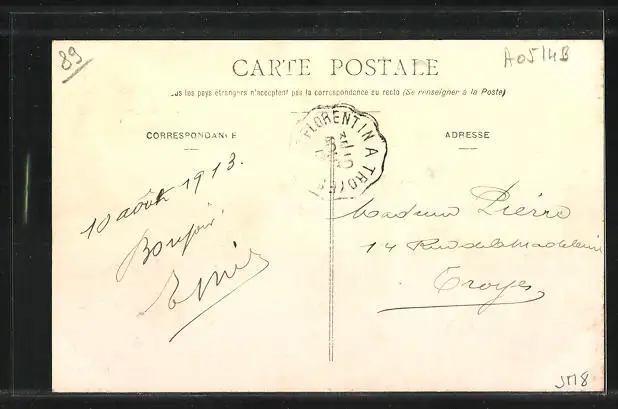 89
A0514B
CARTE POSTALE
us les pays étrangers n'acceptent pas la correspondance au recto (Se renseigner à la Poste)
CORRESPONDANCE
ADRESSE
FLORENTIN A TROYES
10 août 1913.
Bonjour
Madame Pierre
14 Rue de la Madeleine
Troyes
JM8